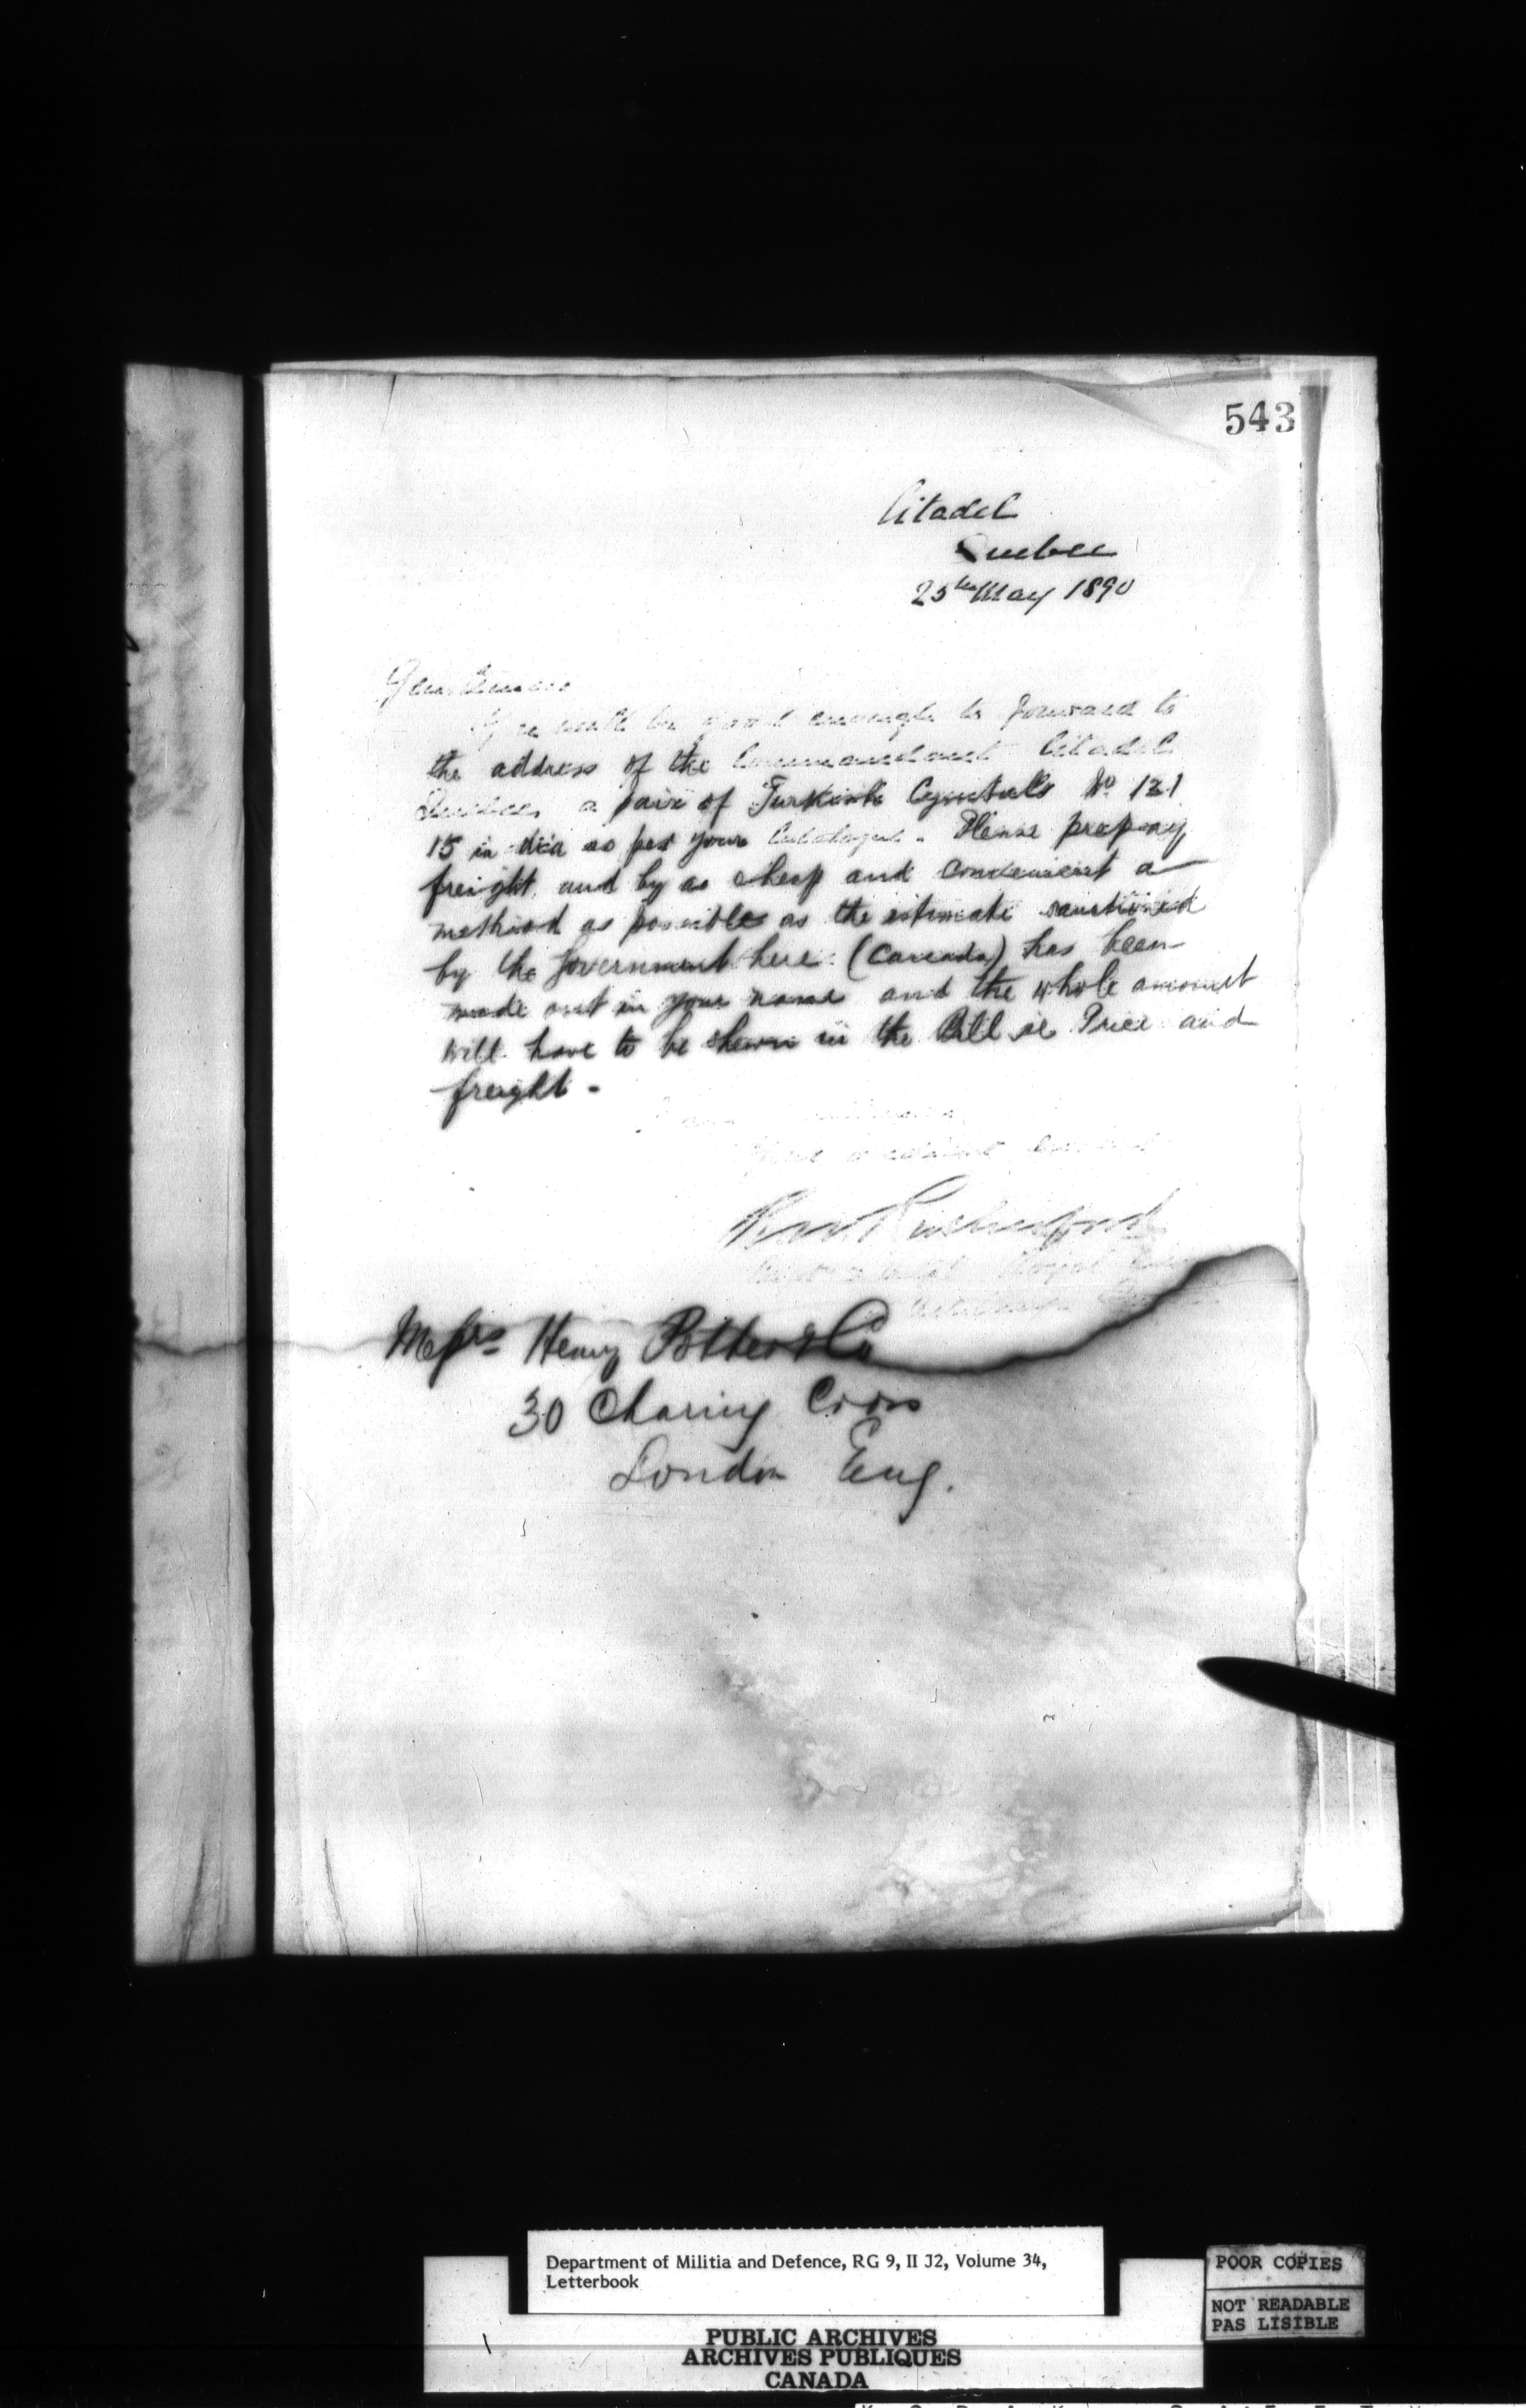 543
Citadel
Quebec
25th May 1890
Gentlemen
You will be good enough to forward to
the address of the Commandant Citadel
Quebec a pair of Turkish Cymbals No 121
15 in dia as per your Catalogue. Please prepay
freight, and by as cheap and convenient a
method as possible as the estimate sanctioned
by the Government here (Canada) has been
made out in your name and the whole amount
will have to be shown in the Bill ie Price and
freight -
Your obedient Servant
Royal
Messrs Henry Potter & Co
30 Charing Cross
London Eng.
Department of Militia and Defence, RG 9, II J2, Volume 34,
Letterbook
POOR COPIES
NOT READABLE
PAS LISIBLE
PUBLIC ARCHIVES
ARCHIVES PUBLIQUES
CANADA